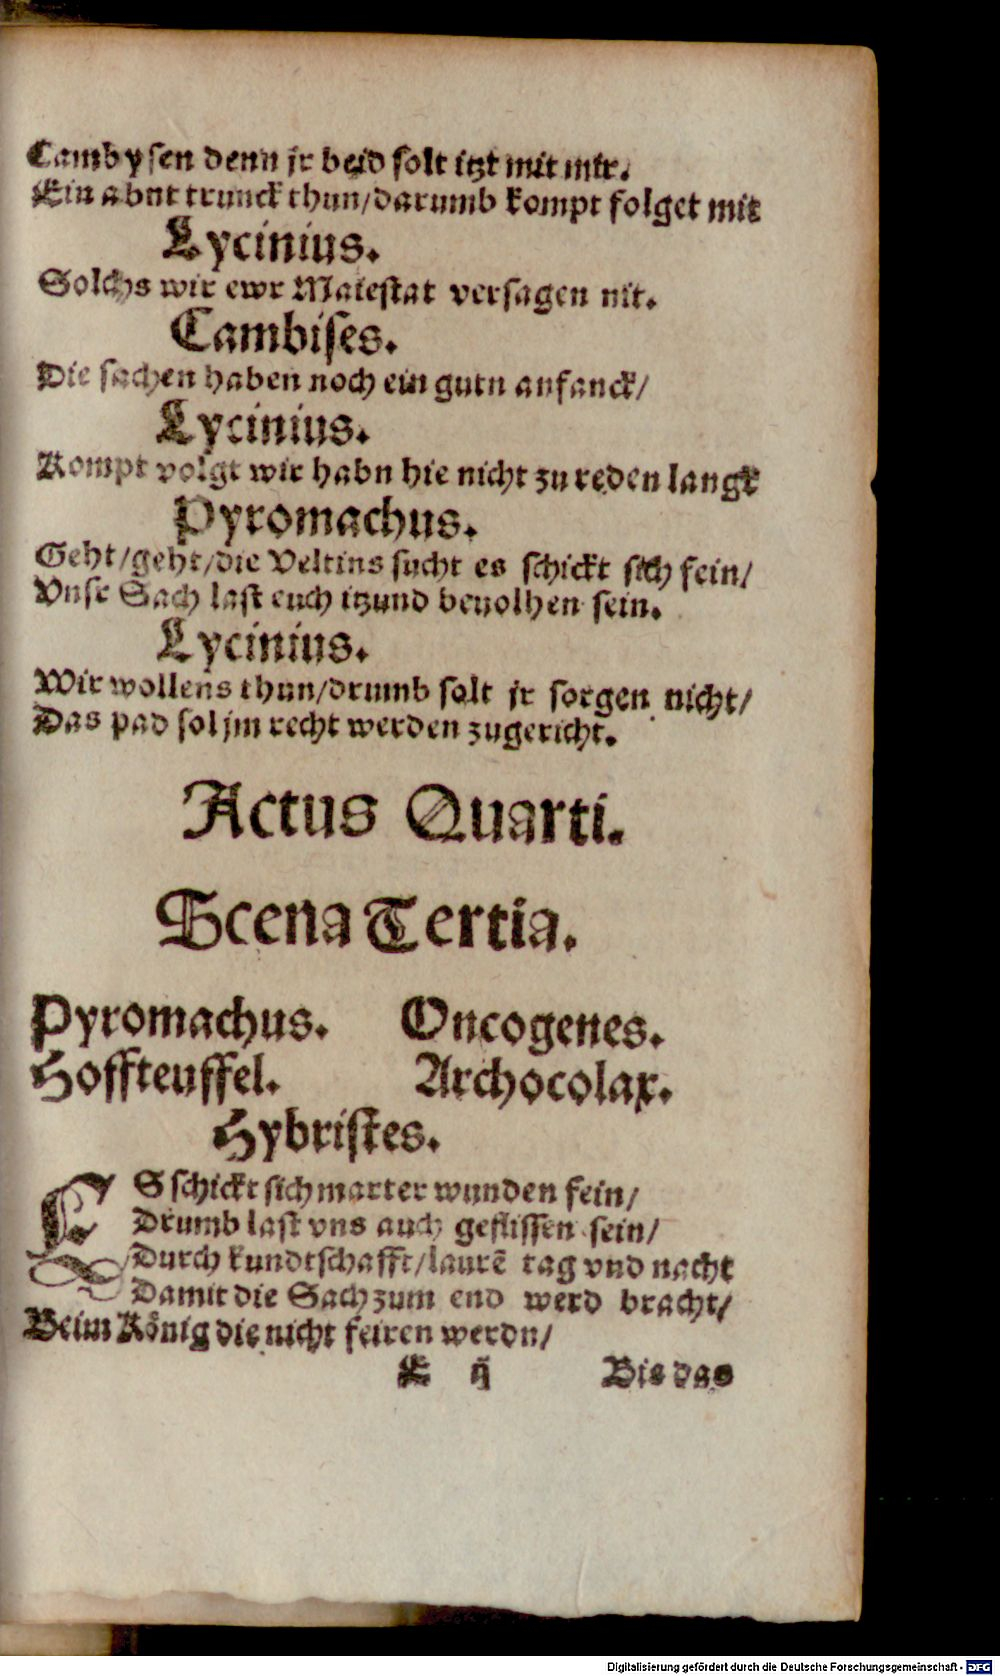 Cambysen denn jr beid solt itzt mit mir.
Ein abnt trunck thun/darumb kompt folget mit
Lycinius.
Solchs wir ewr Maiestat versagen nit.
Cambises.
Die sachen haben noch ein gutn anfanck/
Lycinius.
Kompt volgt wir habn hie nicht zu reden langk
Pyromachus.
Geht/geht/die Veltins sucht es schickt sich fein/
Vnsr Sach last euch itzund beuolhen sein.
Lycinius.
Wir wollens thun/drumb solt jr sorgen nicht/
Das pad sol jm recht werden zugericht.
Actus Quarti.
Scena Tertia.
Pyromachus. Oncogenes.
Hoffteuffel. Archocolax.
Hybristes.
ES schickt sich marter wunden fein/
Drumb last vns auch geflissen sein/
Durch kundtschafft/laurē tag vnd nacht
Damit die Sach zum end werd bracht/
Beim König die nicht feiren werdn/
E ij Bis das
Digitalisierung gefördert durch die Deutsche Forschungsgemeinschaft - DFG